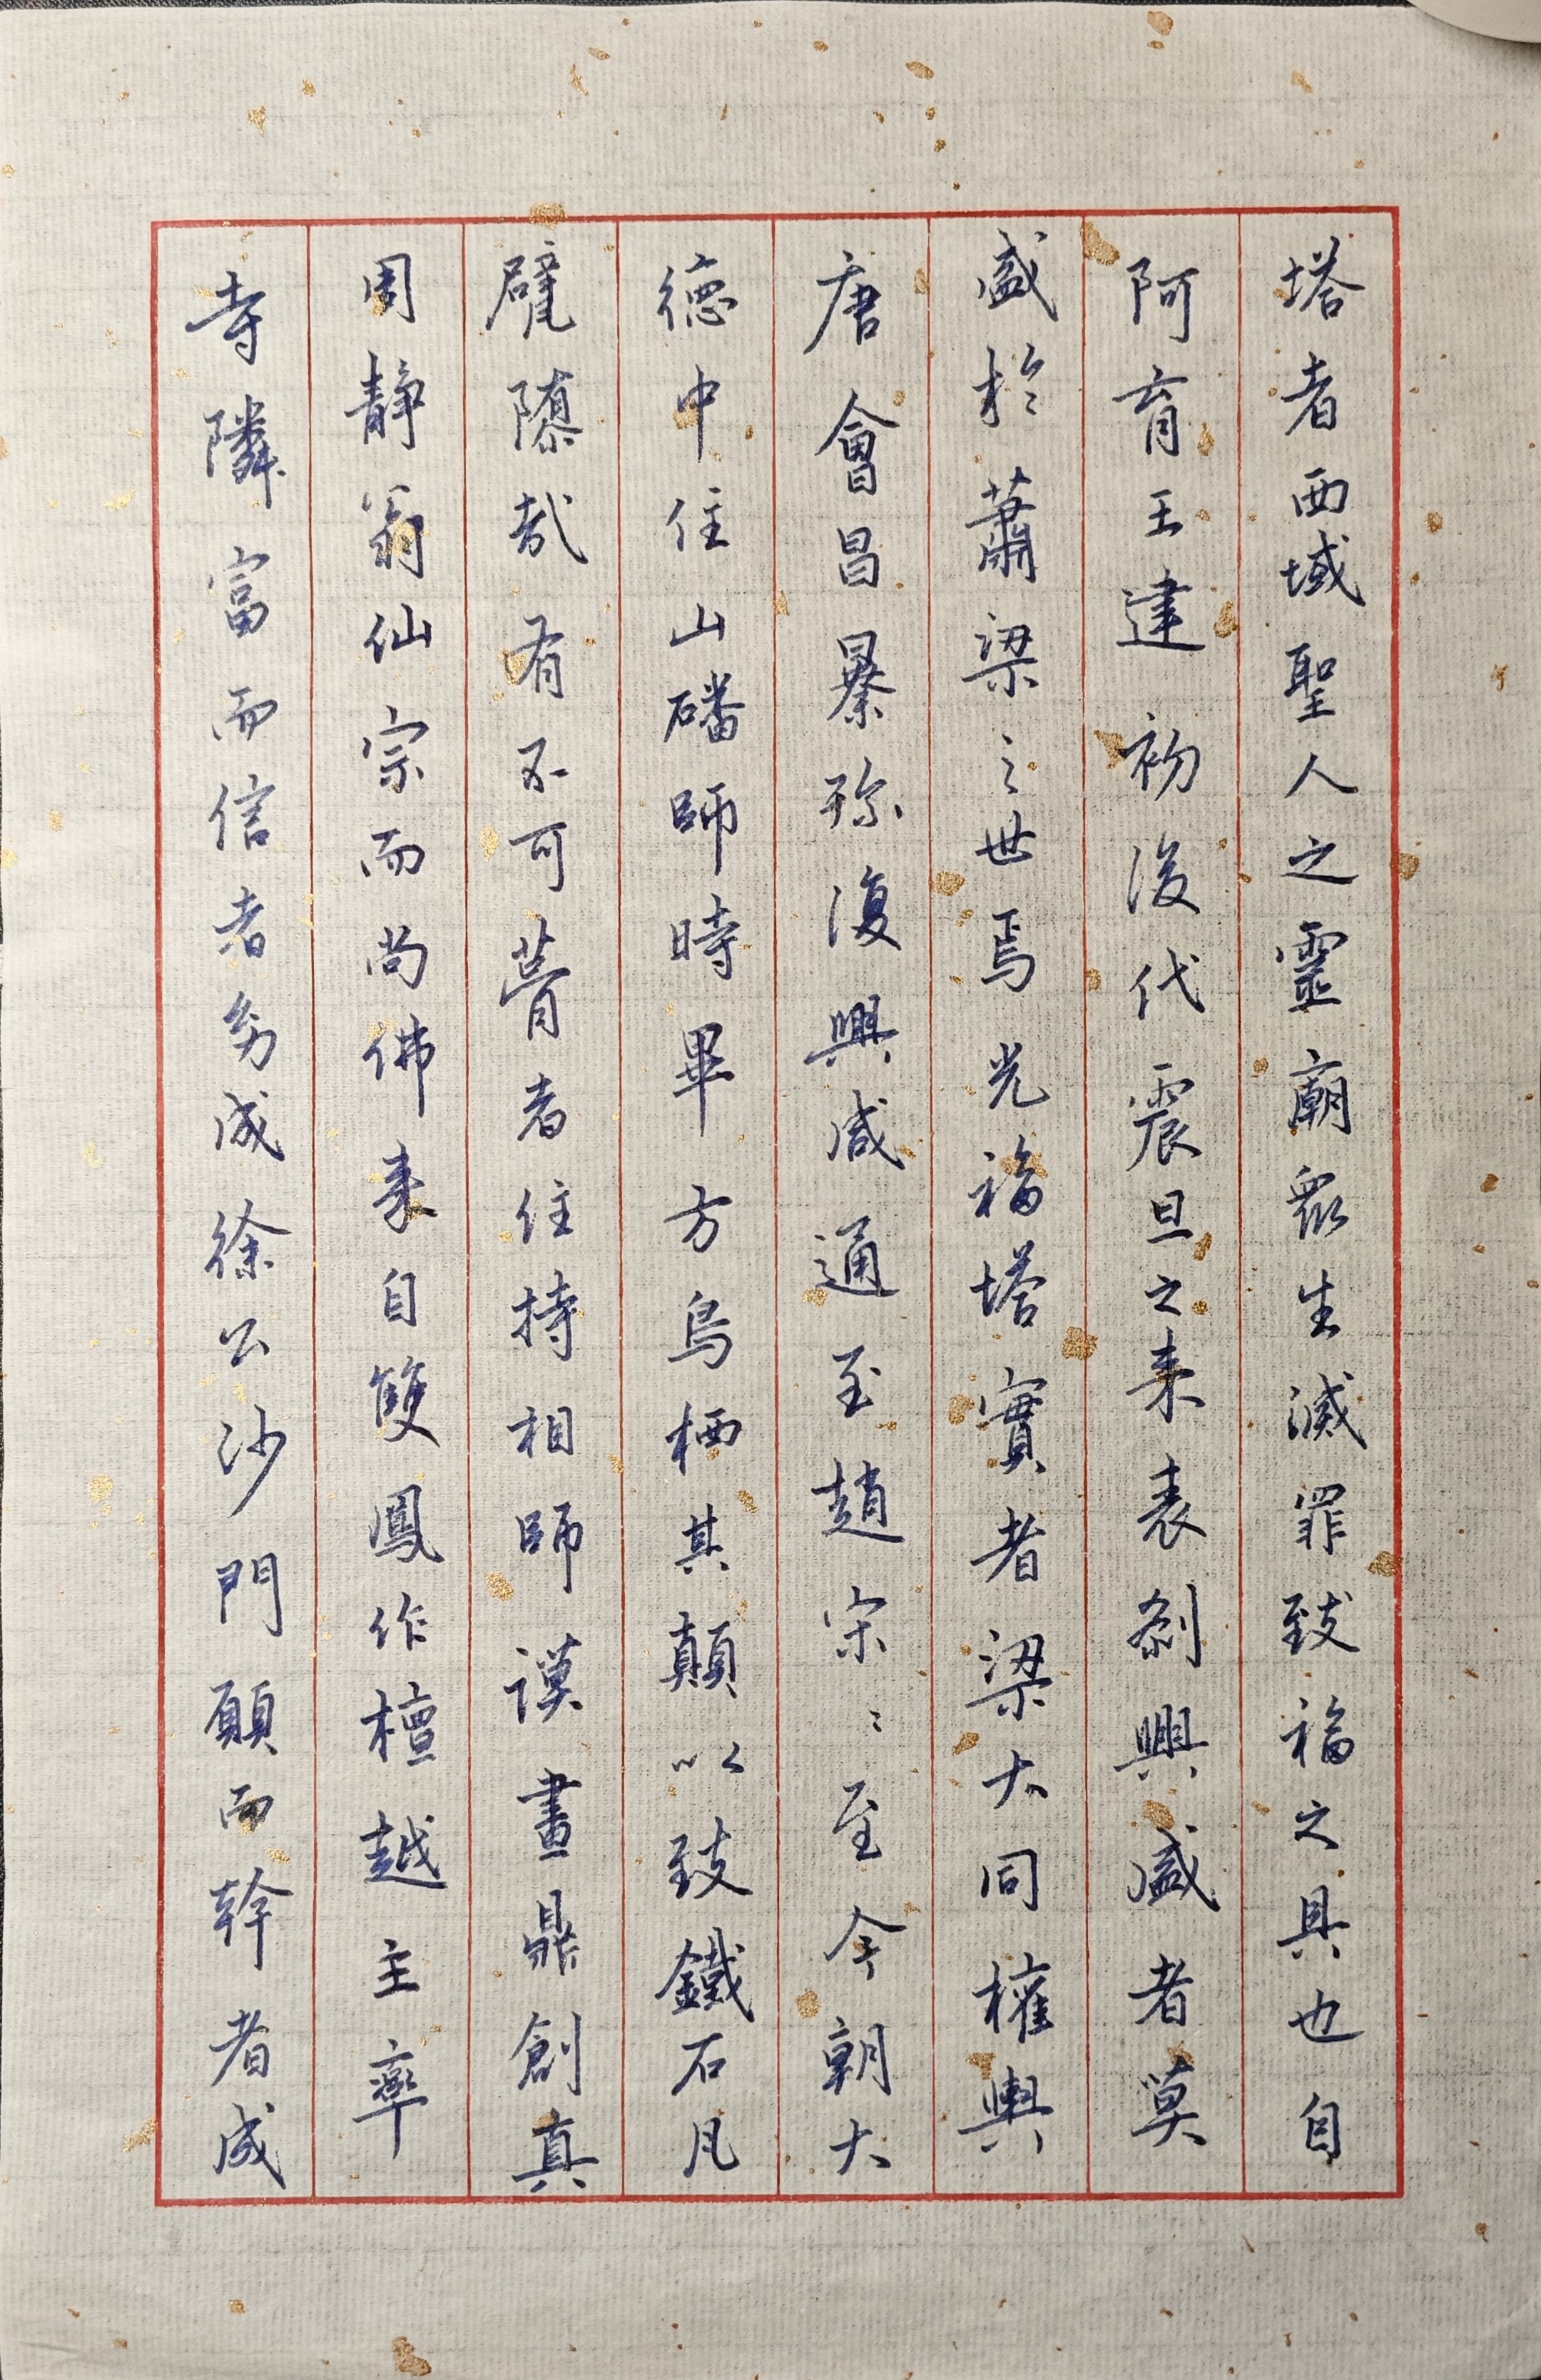 塔者西域聖人之靈廟衆生滅罪致福之具也自
阿育王建初後代震旦之来表剎興盛者莫
盛於蕭梁之世焉光福塔實者梁大同權輿
唐會昌暴殄復興咸通至趙宋〻至今朝大
德中住山磻師時畢方鳥栖其顛以致鐵石凡
甓隳哉有不可瞢者住持相師謨畫鼎創真
周靜翁仙宗而尚佛来自雙鳳作檀越主率
寺隣富而信者多成徐公沙門願而幹者成